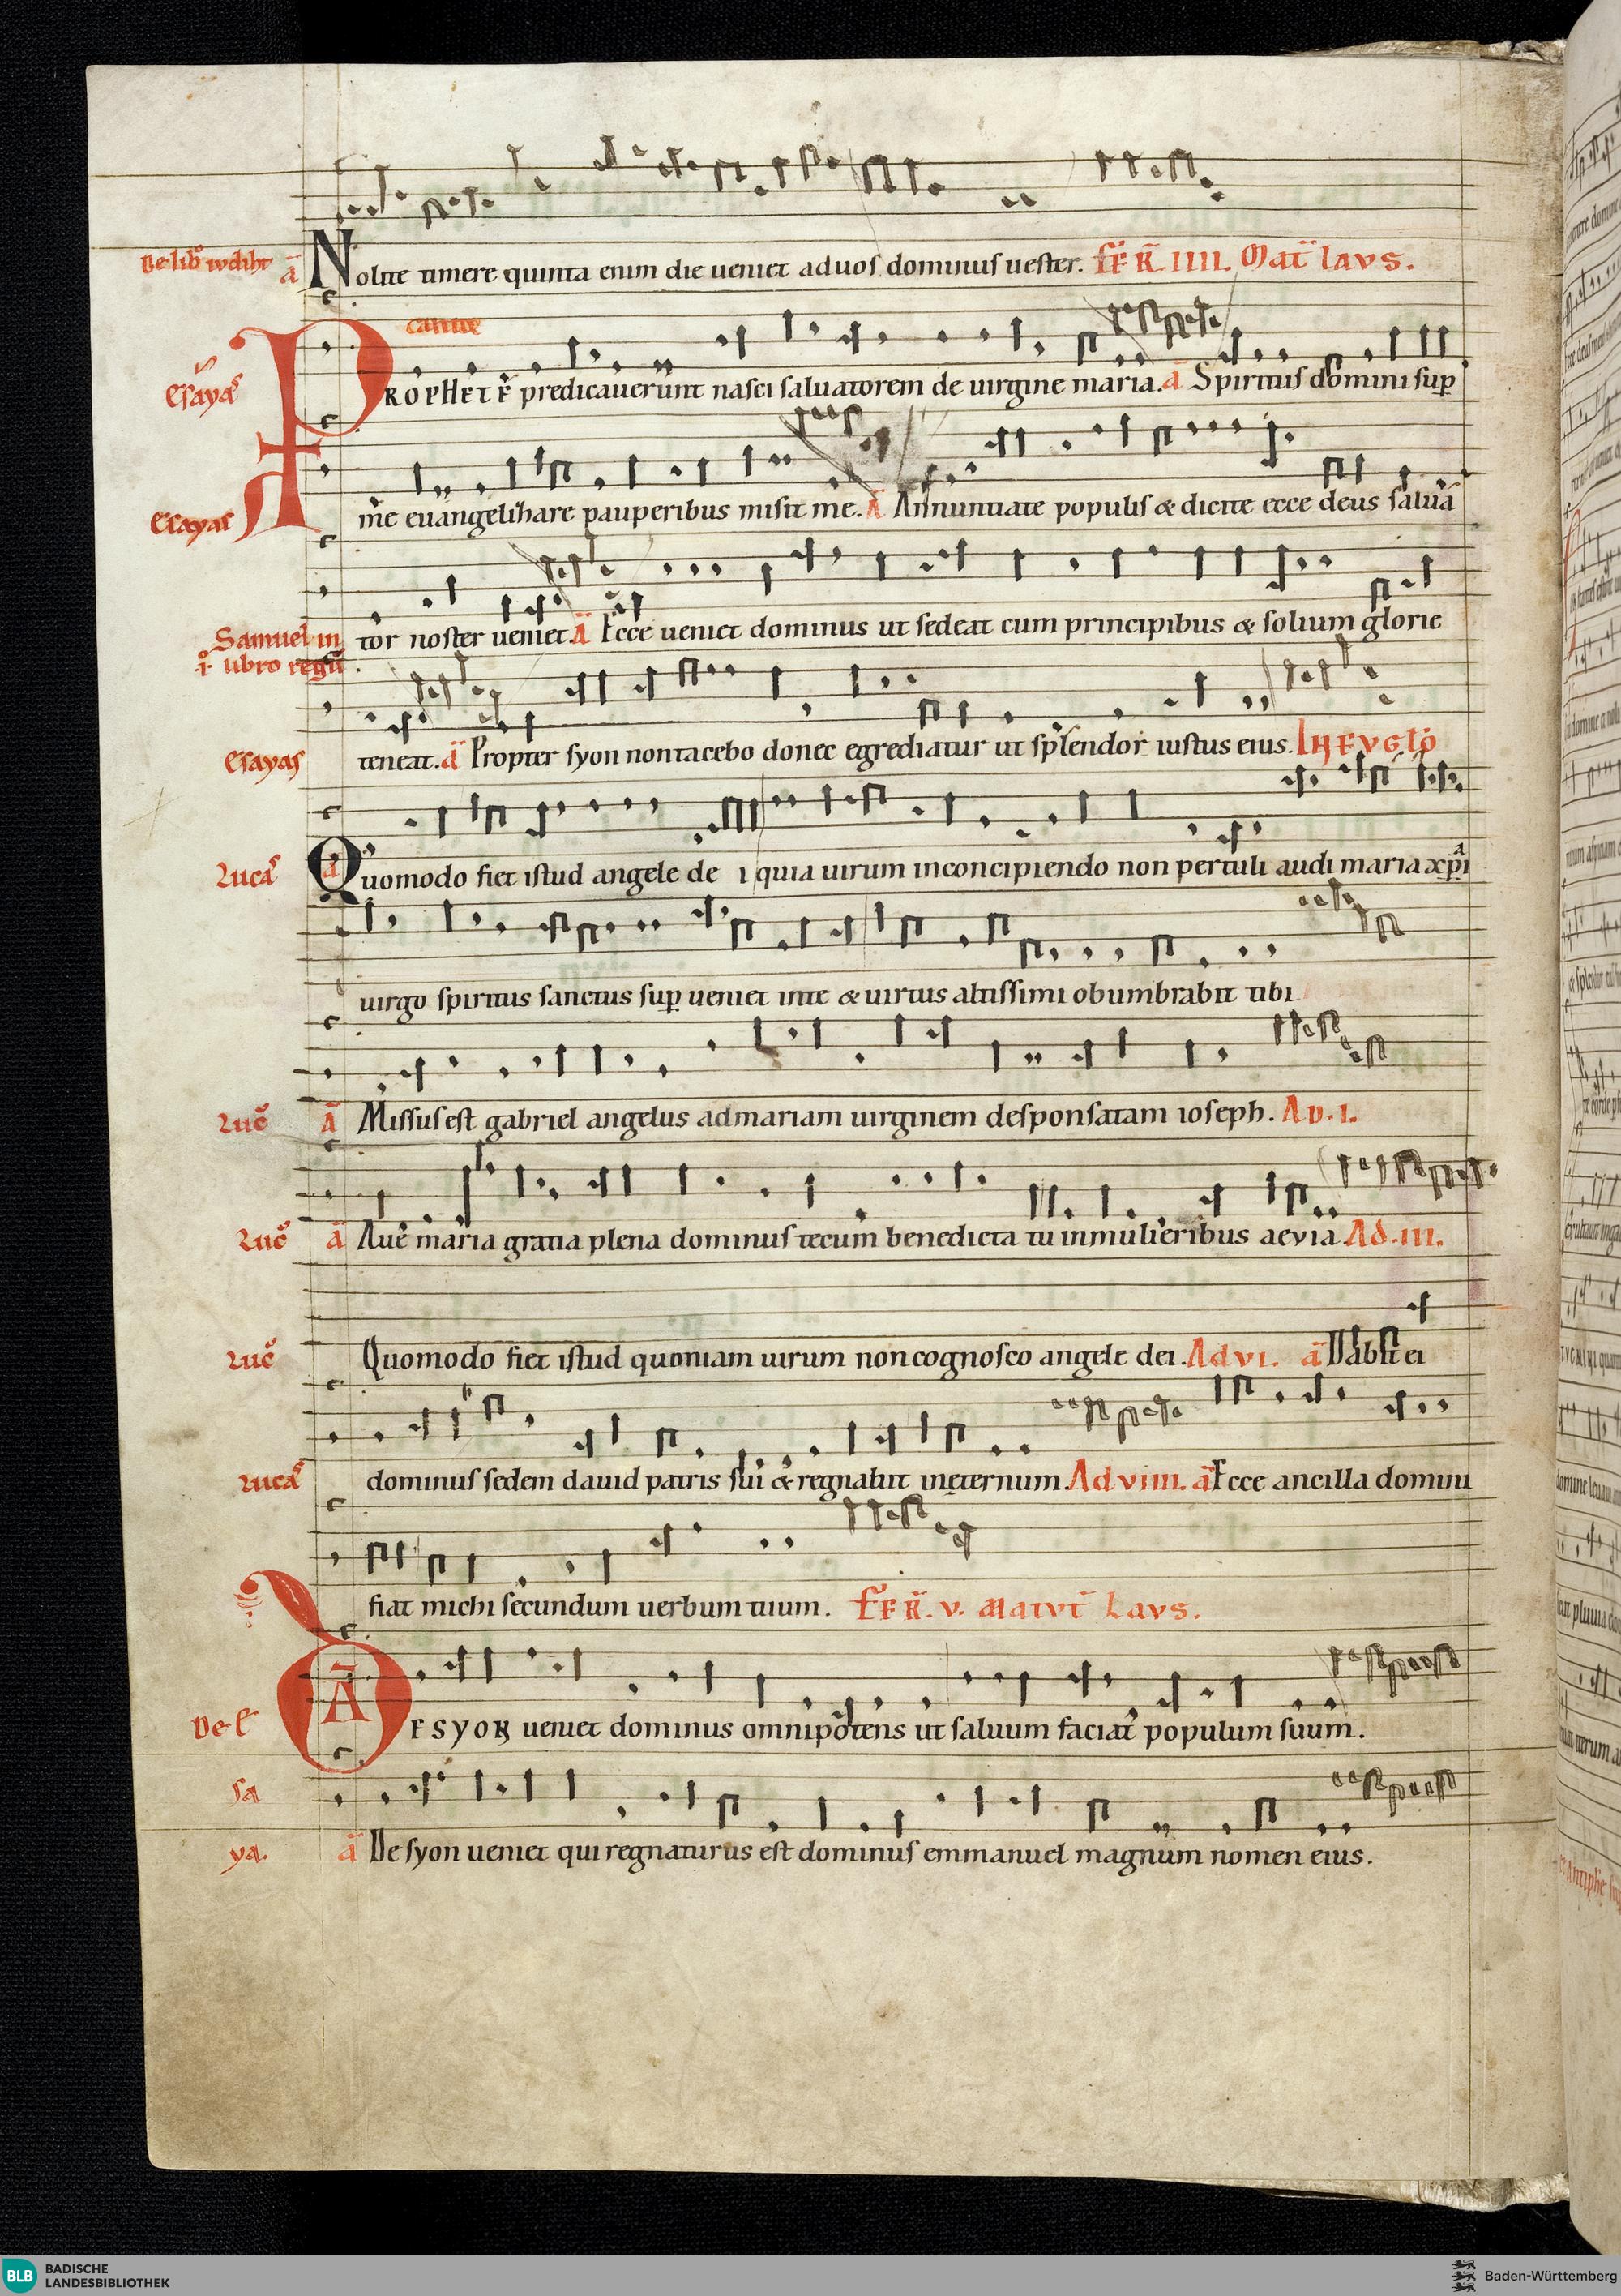 De lib̊ iudiht ā Nolite timere quinta enim die ueniet ad uos dominus uester. FER̄. IIII. Mat̄ lavs.
cantic
Esayas PROPHETE predicauerunt nasci saluatorem de uirgine maria. ā Spiritus domini sup
Esayas me euangelizare pauperibus misit me. Ā Annuntiate populis & dicite ecce deus saluā
Samuel in tor noster ueniet Ā Ecce ueniet dominus ut sedeat cum principibus & solium glorie
.i. libro regū
Esayas teneat. ā Propter syon non tacebo donec egrediatur ut splendor iustus eius. IN EVGLŌ
Lucas ā Quomodo fiet istud angele de i quia uirum inconcipiendo non pertuli audi maria xp̄i
uirgo spiritus sanctus sup ueniet inte & uirtus altissimi obumbrabit tibi
Luc̄ Ā Missus est gabriel angelus ad mariam uirginem desponsatam ioseph. AD. I.
Luc̄ ā Aue maria gratia plena dominus tecum benedicta tu inmulieribus aevia Ad. III.
Luc̄ Quomodo fiet istud quoniam uirum non cognosco angele dei. Ad VI. ā Dabit ei
Lucas dominus sedem dauid patris sui & regnabit ineternum. Ad VIIII. ā Ecce ancilla domini
fiat michi secundum uerbum tuum. FER̄. V. Matvt̄ Lavs.
De .E Ā DE SYON ueniet dominus omnipotens ut saluum faciat populum suum.
sa
ya. ā De syon ueniet qui regnaturus est dominus emmanuel magnum nomen eius.
BLB BADISCHE
LANDESBIBLIOTHEK
Baden-Württemberg